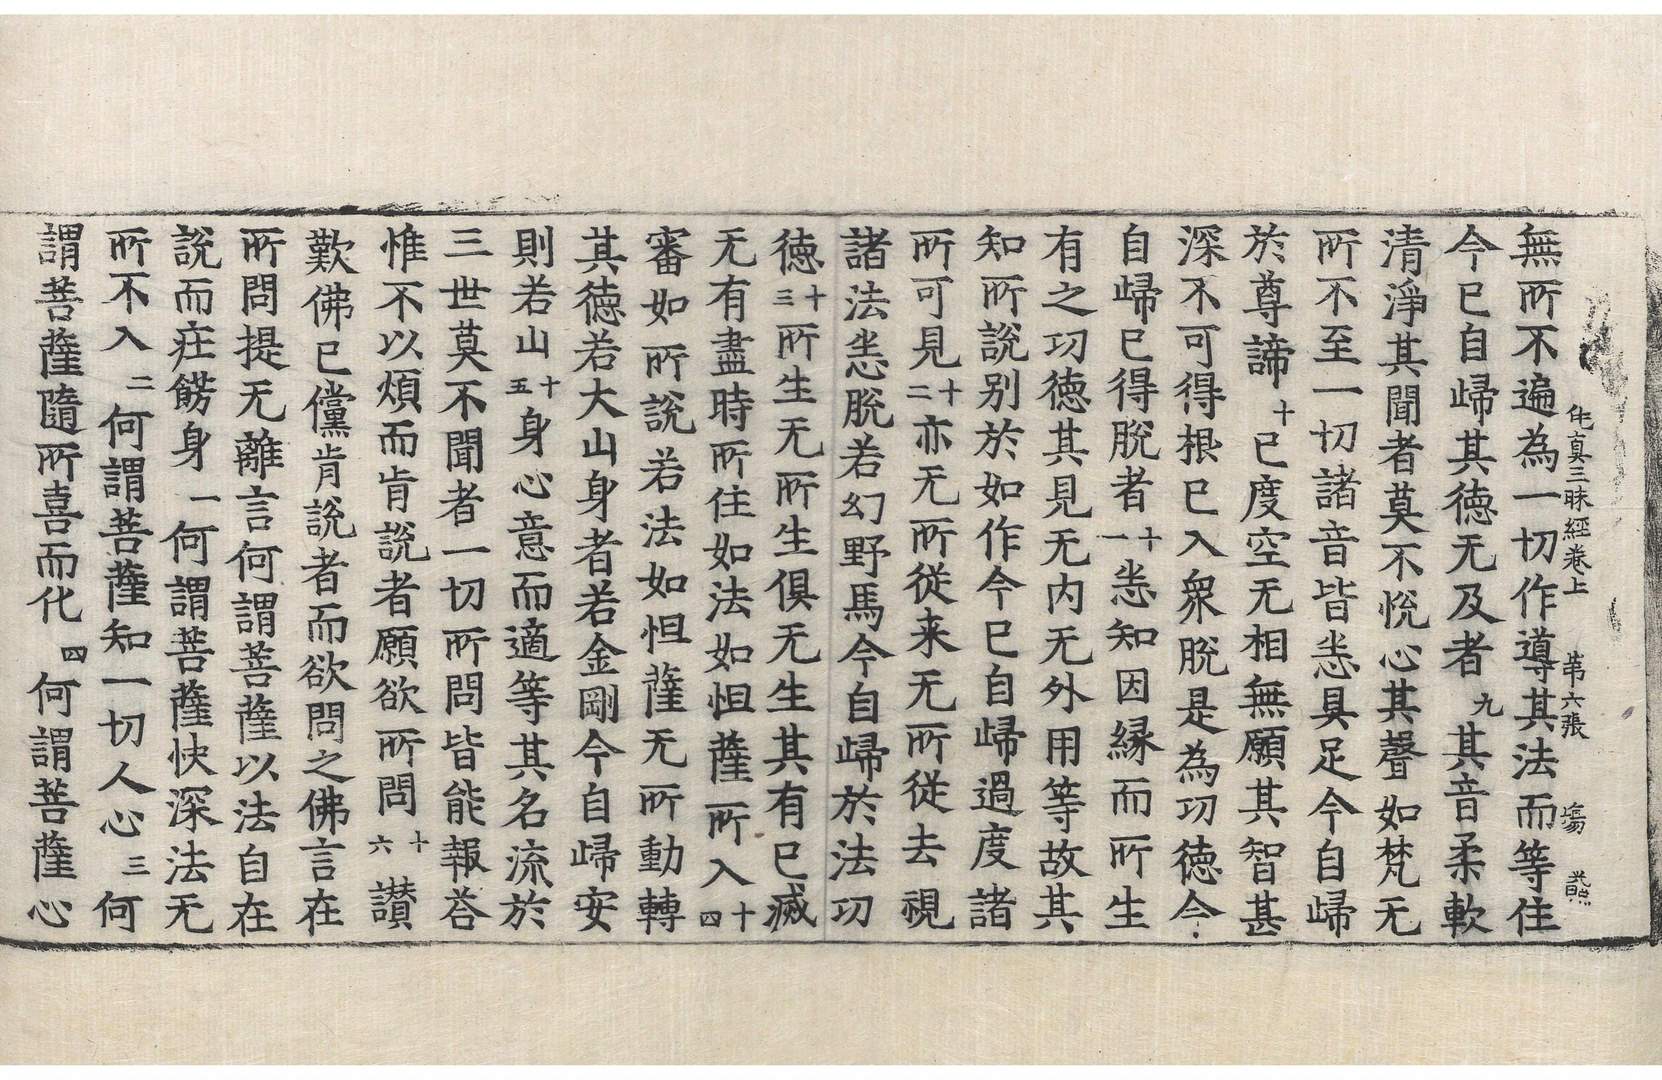 伅真三昧經卷上 第六張 塲
無所不遍為一切作導其法而等住
今已自歸其德无及者九其音柔軟
清淨其聞者莫不悅心其聲如梵无
所不至一切諸音皆悉具足今自歸
於尊諦十已度空无相無願其智甚
深不可得根已入衆脫是為功德今
自歸已得脫者十一悉知因緣而所生
有之功德其見无内无外用等故其
知所說别於如作今已自歸過度諸
所可見十二亦无所從来无所從去視
諸法悉脫若幻野馬今自歸於法功
德十三所生无所生俱无生其有已滅
无有盡時所住如法如怛薩所入十四
審如所說若法如怛薩无所動轉
其德若大山身者若金剛今自歸安
則若山十五身心意而適等其名流於
三世莫不聞者一切所問皆能報荅
惟不以煩而肯說者願欲所問十六讃
歎佛已儻肯說者而欲問之佛言在
所問提无離言何謂菩薩以法自在
說而疘餝身一何謂菩薩快深法无
所不入二何謂菩薩知一切人心三何
謂菩薩隨所喜而化四何謂菩薩心